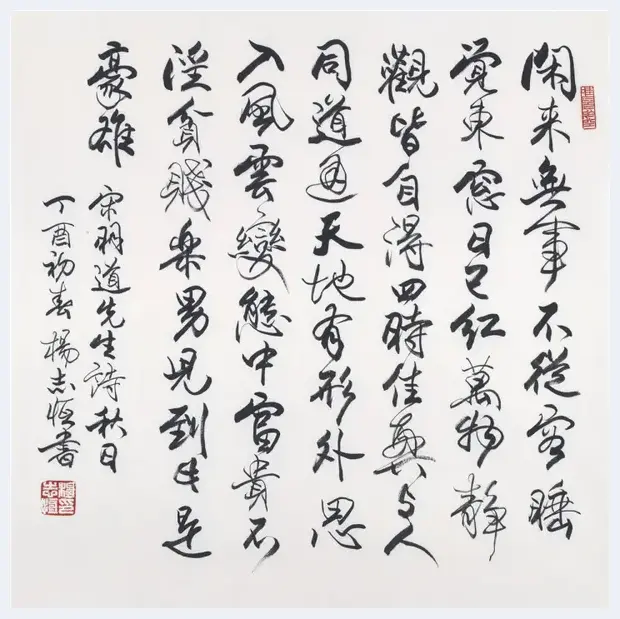 閑来無事不從容睡
觉東窓日已紅萬物静
觀皆自得四時佳興与人
同道通天地有形外思
入風雲變態中富貴不
淫貧賤楽男児到此是
豪雄
宋明道先生詩秋日
丁酉初春楊志恒書